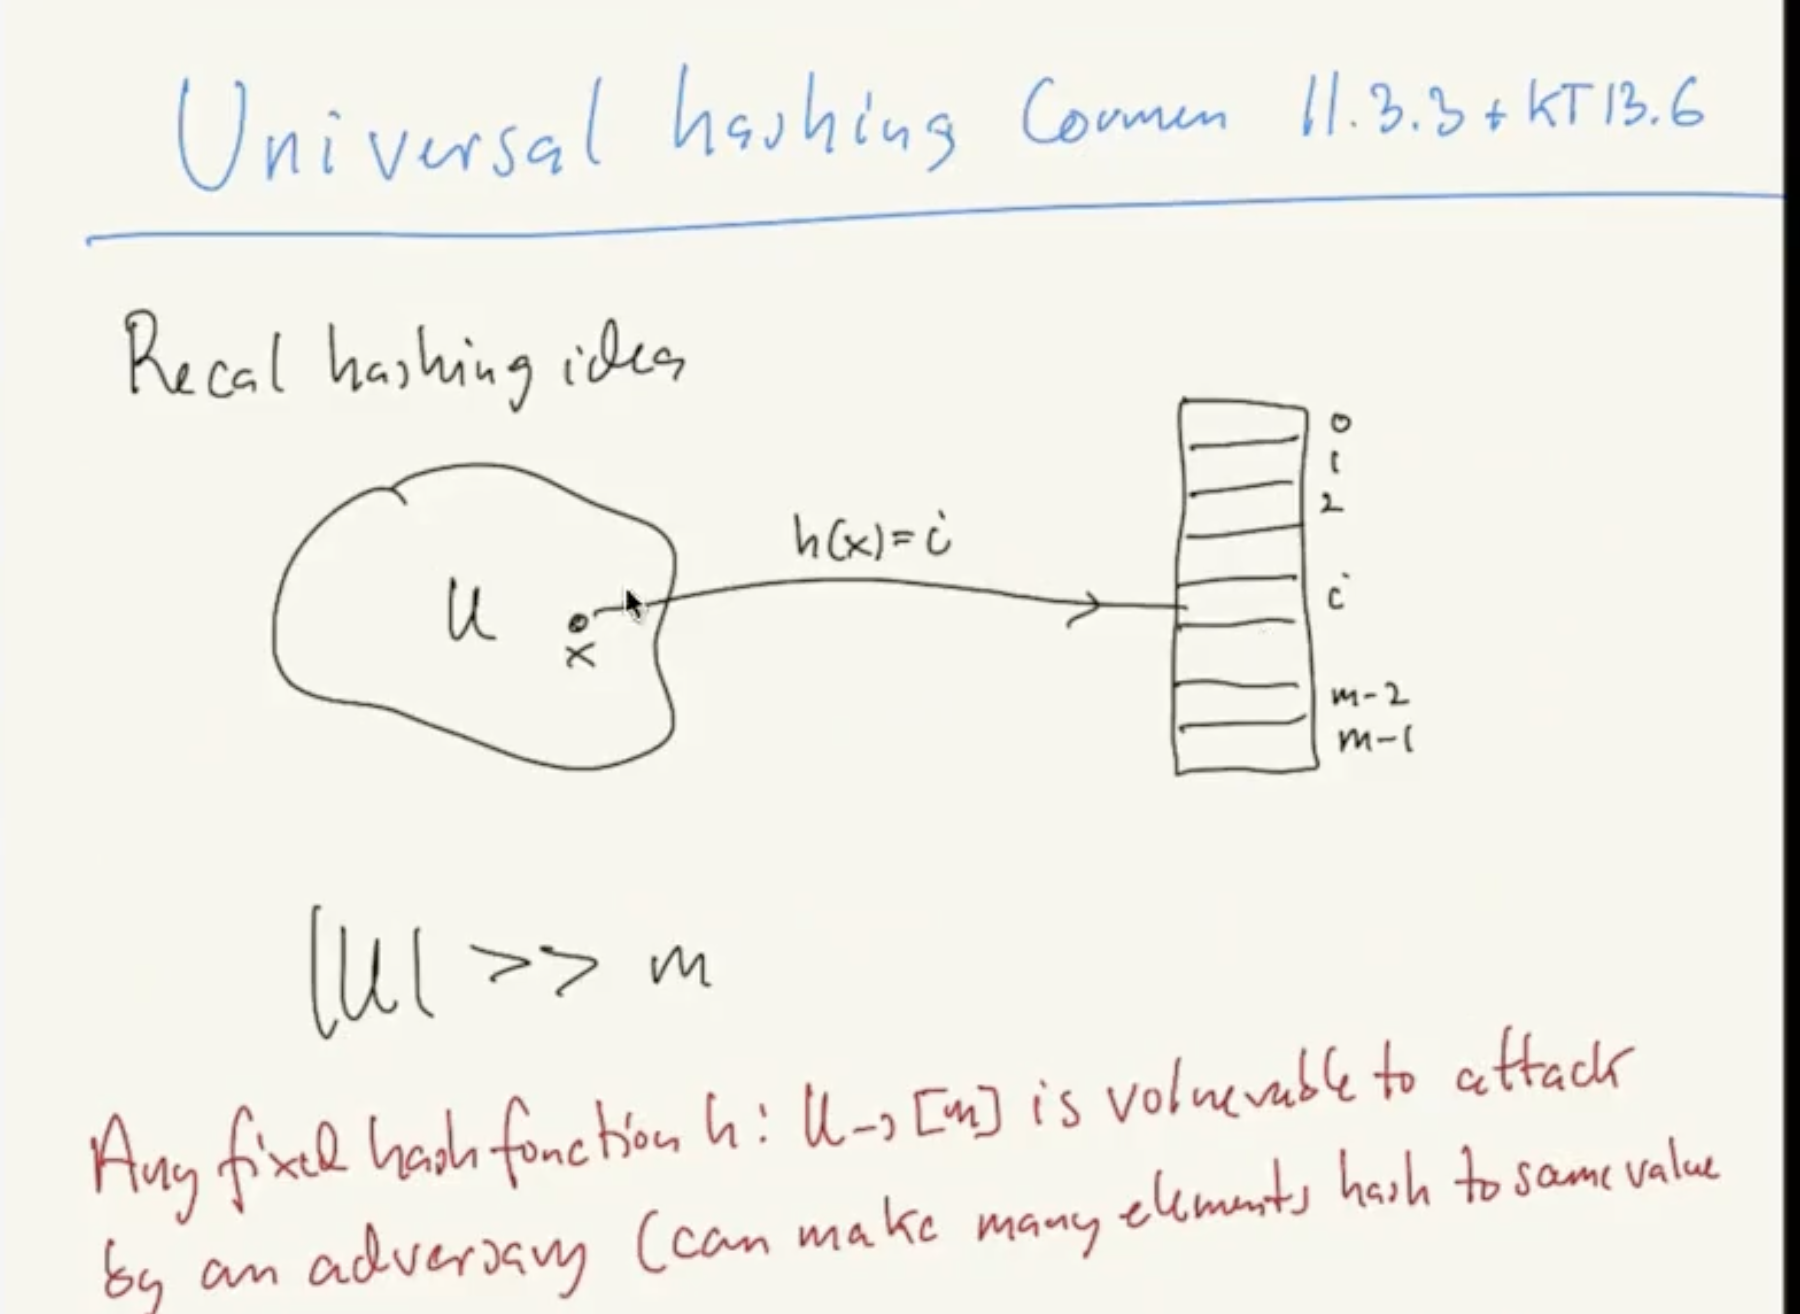 Universal hashing Cormen 11.3.3 + KT13.6
Recal hashing idea
0
1
2
h(x)=i
U
x
i
m-2
m-1
|U| >> m
Any fixed hash function h: U→[m] is volnerable to attack
by an adversary (can make many elements hash to same value